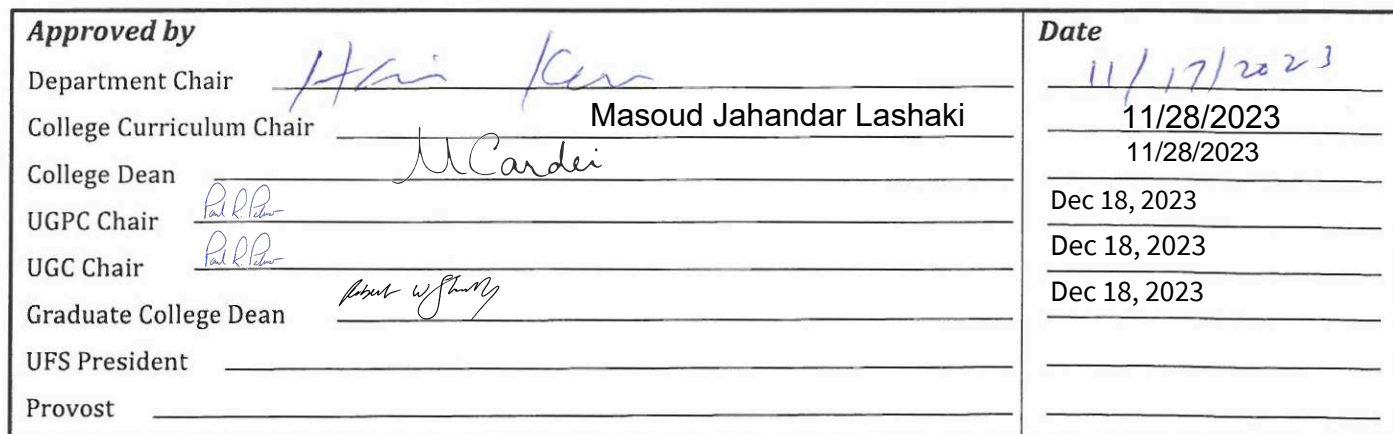 Approved by Date
Department Chair 11/17/2023
College Curriculum Chair Masoud Jahandar Lashaki 11/28/2023
College Dean M Cardei 11/28/2023
UGPC Chair Paul R. Dec 18, 2023
UGC Chair Paul R. Dec 18, 2023
Graduate College Dean Robert W Dec 18, 2023
UFS President
Provost